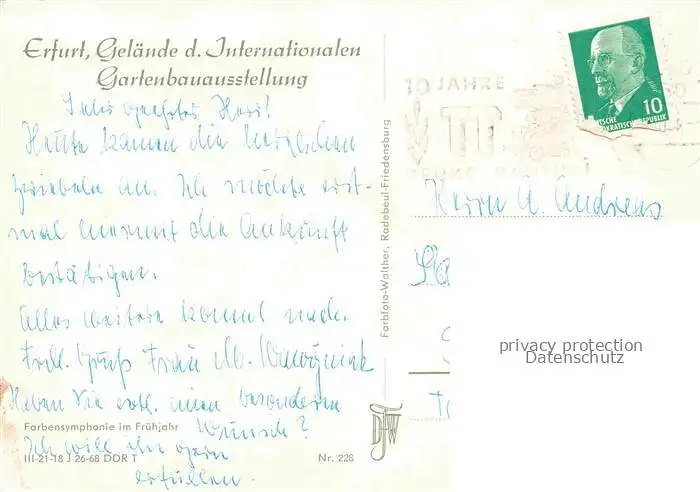 Erfurt, Gelände d. Internationalen
Gartenbauausstellung
Sehr geehrter Herr!
Heute kamen die herrlichen
Zwiebeln an. Ich möchte erst-
mal hiermit die Ankunft
bestätigen.
Alles weitere kommt nach.
Frdl. Gruß Frau M.
Haben Sie evtl. einen besonderen
Wunsch?
Ich will ihn gern
erfüllen.
Farbensymphonie im Frühjahr
III-21-18 J 26-68 DDR T
Nr. 228
Farbfoto-Walther, Radebeul-Friedensburg
10 JAHRE
10
DEUTSCHE
DEMOKRATISCHE REPUBLIK
Herrn A. Andreas
privacy protection
Datenschutz